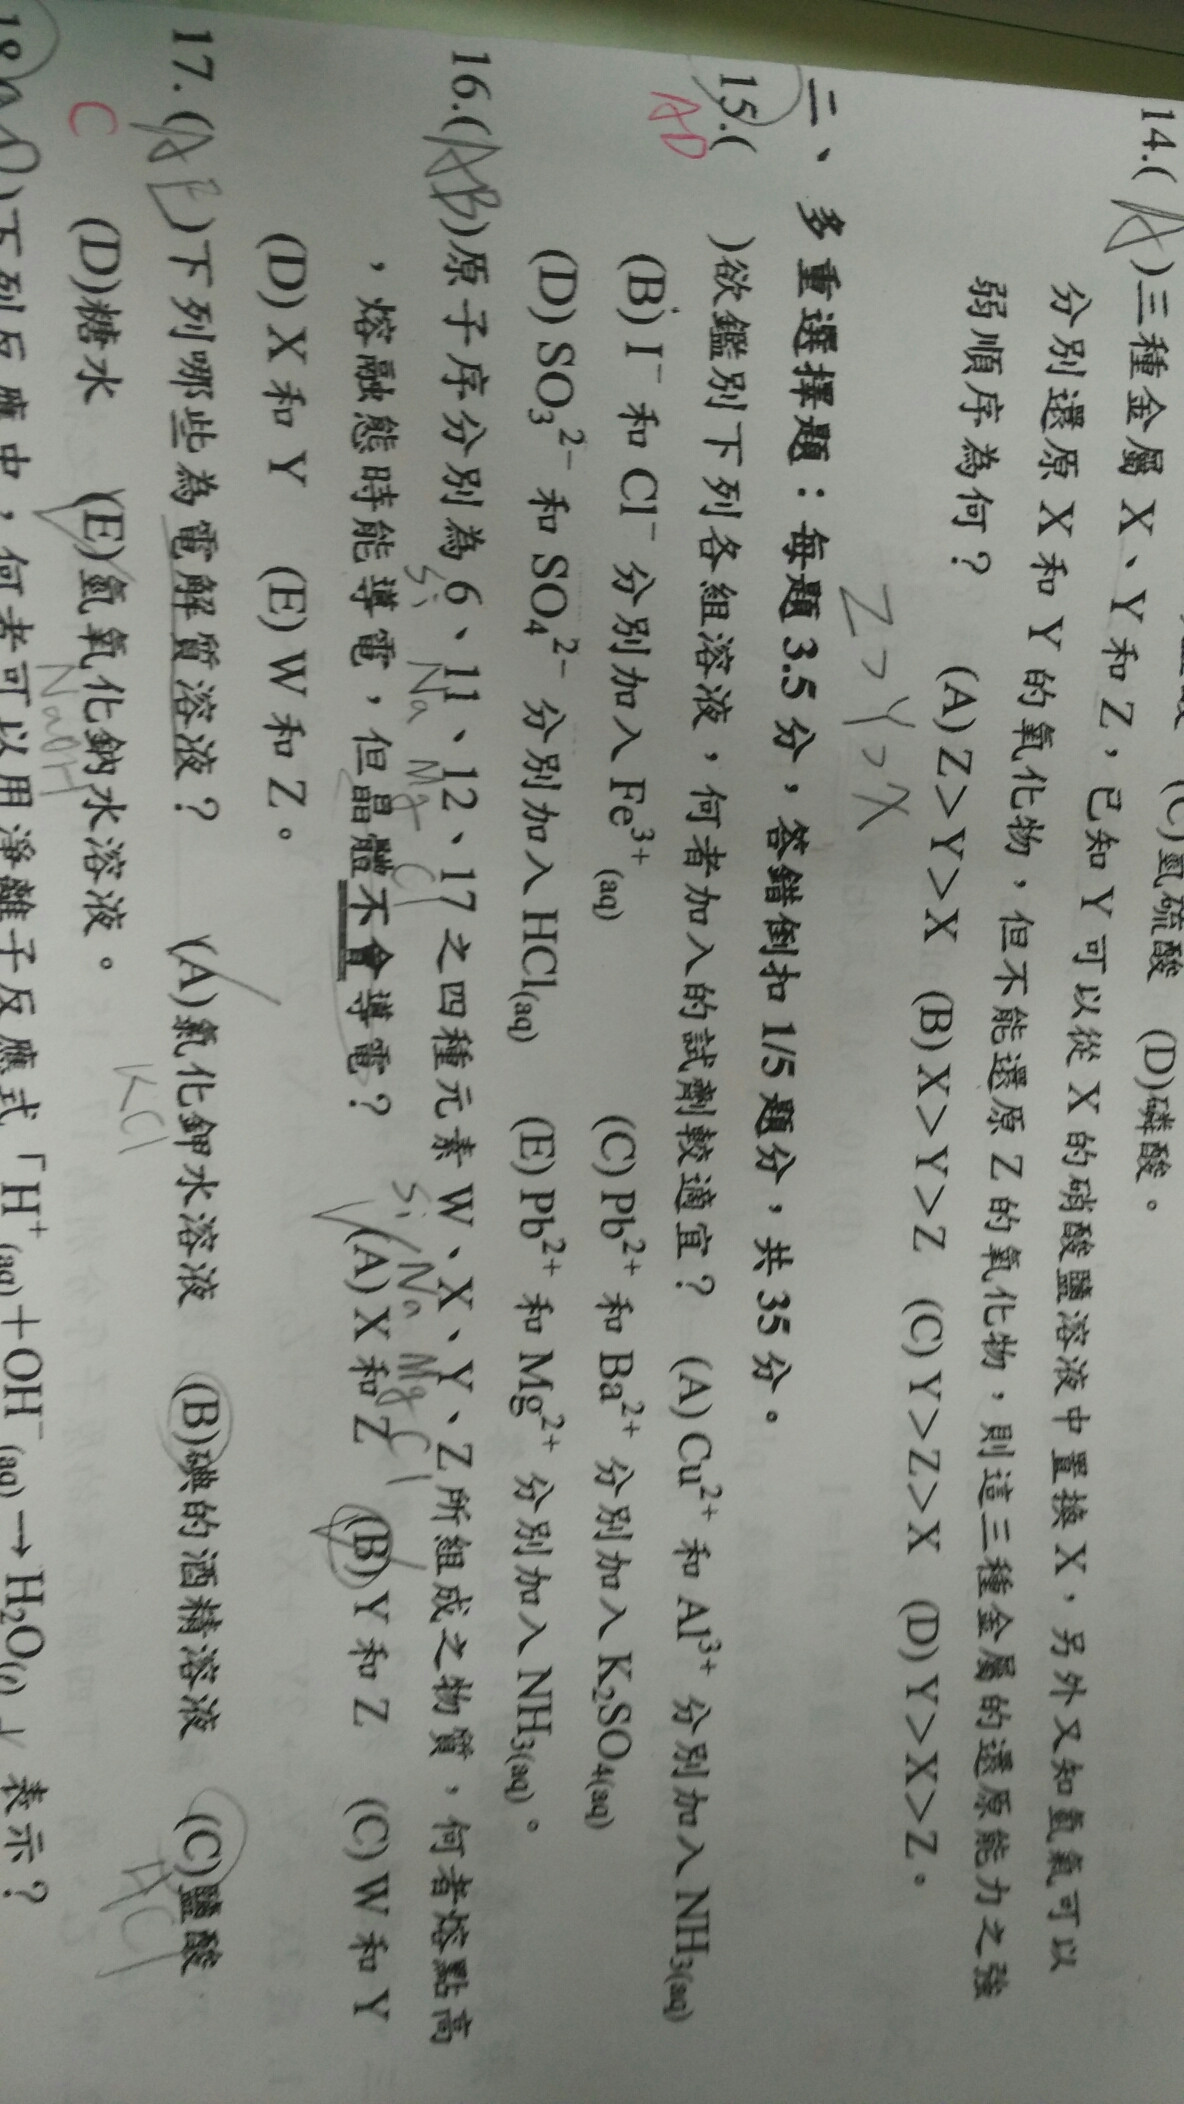 (C)氫硫酸 (D)磷酸。
14.(A)三種金屬 X、Y 和 Z，已知 Y 可以從 X 的硝酸鹽溶液中置換 X，另外又知氫氣可以
分別還原 X 和 Y 的氧化物，但不能還原 Z 的氧化物，則這三種金屬的還原能力之強
弱順序為何？ (A) Z＞Y＞X (B) X＞Y＞Z (C) Y＞Z＞X (D) Y＞X＞Z。
Z>Y>X
二、多重選擇題：每題 3.5 分，答錯倒扣 1/5 題分，共 35 分。
15.( )欲鑑別下列各組溶液，何者加入的試劑較適宜？ (A) Cu²⁺ 和 Al³⁺ 分別加入 NH₃(aq)
AD
(B) I⁻ 和 Cl⁻ 分別加入 Fe³⁺(aq) (C) Pb²⁺ 和 Ba²⁺ 分別加入 K₂SO₄(aq)
(D) SO₃²⁻ 和 SO₄²⁻ 分別加入 HCl(aq) (E) Pb²⁺ 和 Mg²⁺ 分別加入 NH₃(aq)。
16.(AB)原子序分別為 6、11、12、17 之四種元素 W、X、Y、Z 所組成之物質，何者熔點高
Si Na Mg Cl Si Na Mg Cl
，熔融態時能導電，但晶體不會導電？ (A) X 和 Z (B) Y 和 Z (C) W 和 Y
(D) X 和 Y (E) W 和 Z。
17.(AE)下列哪些為電解質溶液？ (A)氯化鉀水溶液 (B)碘的酒精溶液 (C)鹽酸
C KCl HCl
(D)糖水 (E)氫氧化鈉水溶液。
NaOH
18. )下列反應中，何者可以用淨離子反應式「H⁺(aq)＋OH⁻(aq)→H₂O(l)」表示？